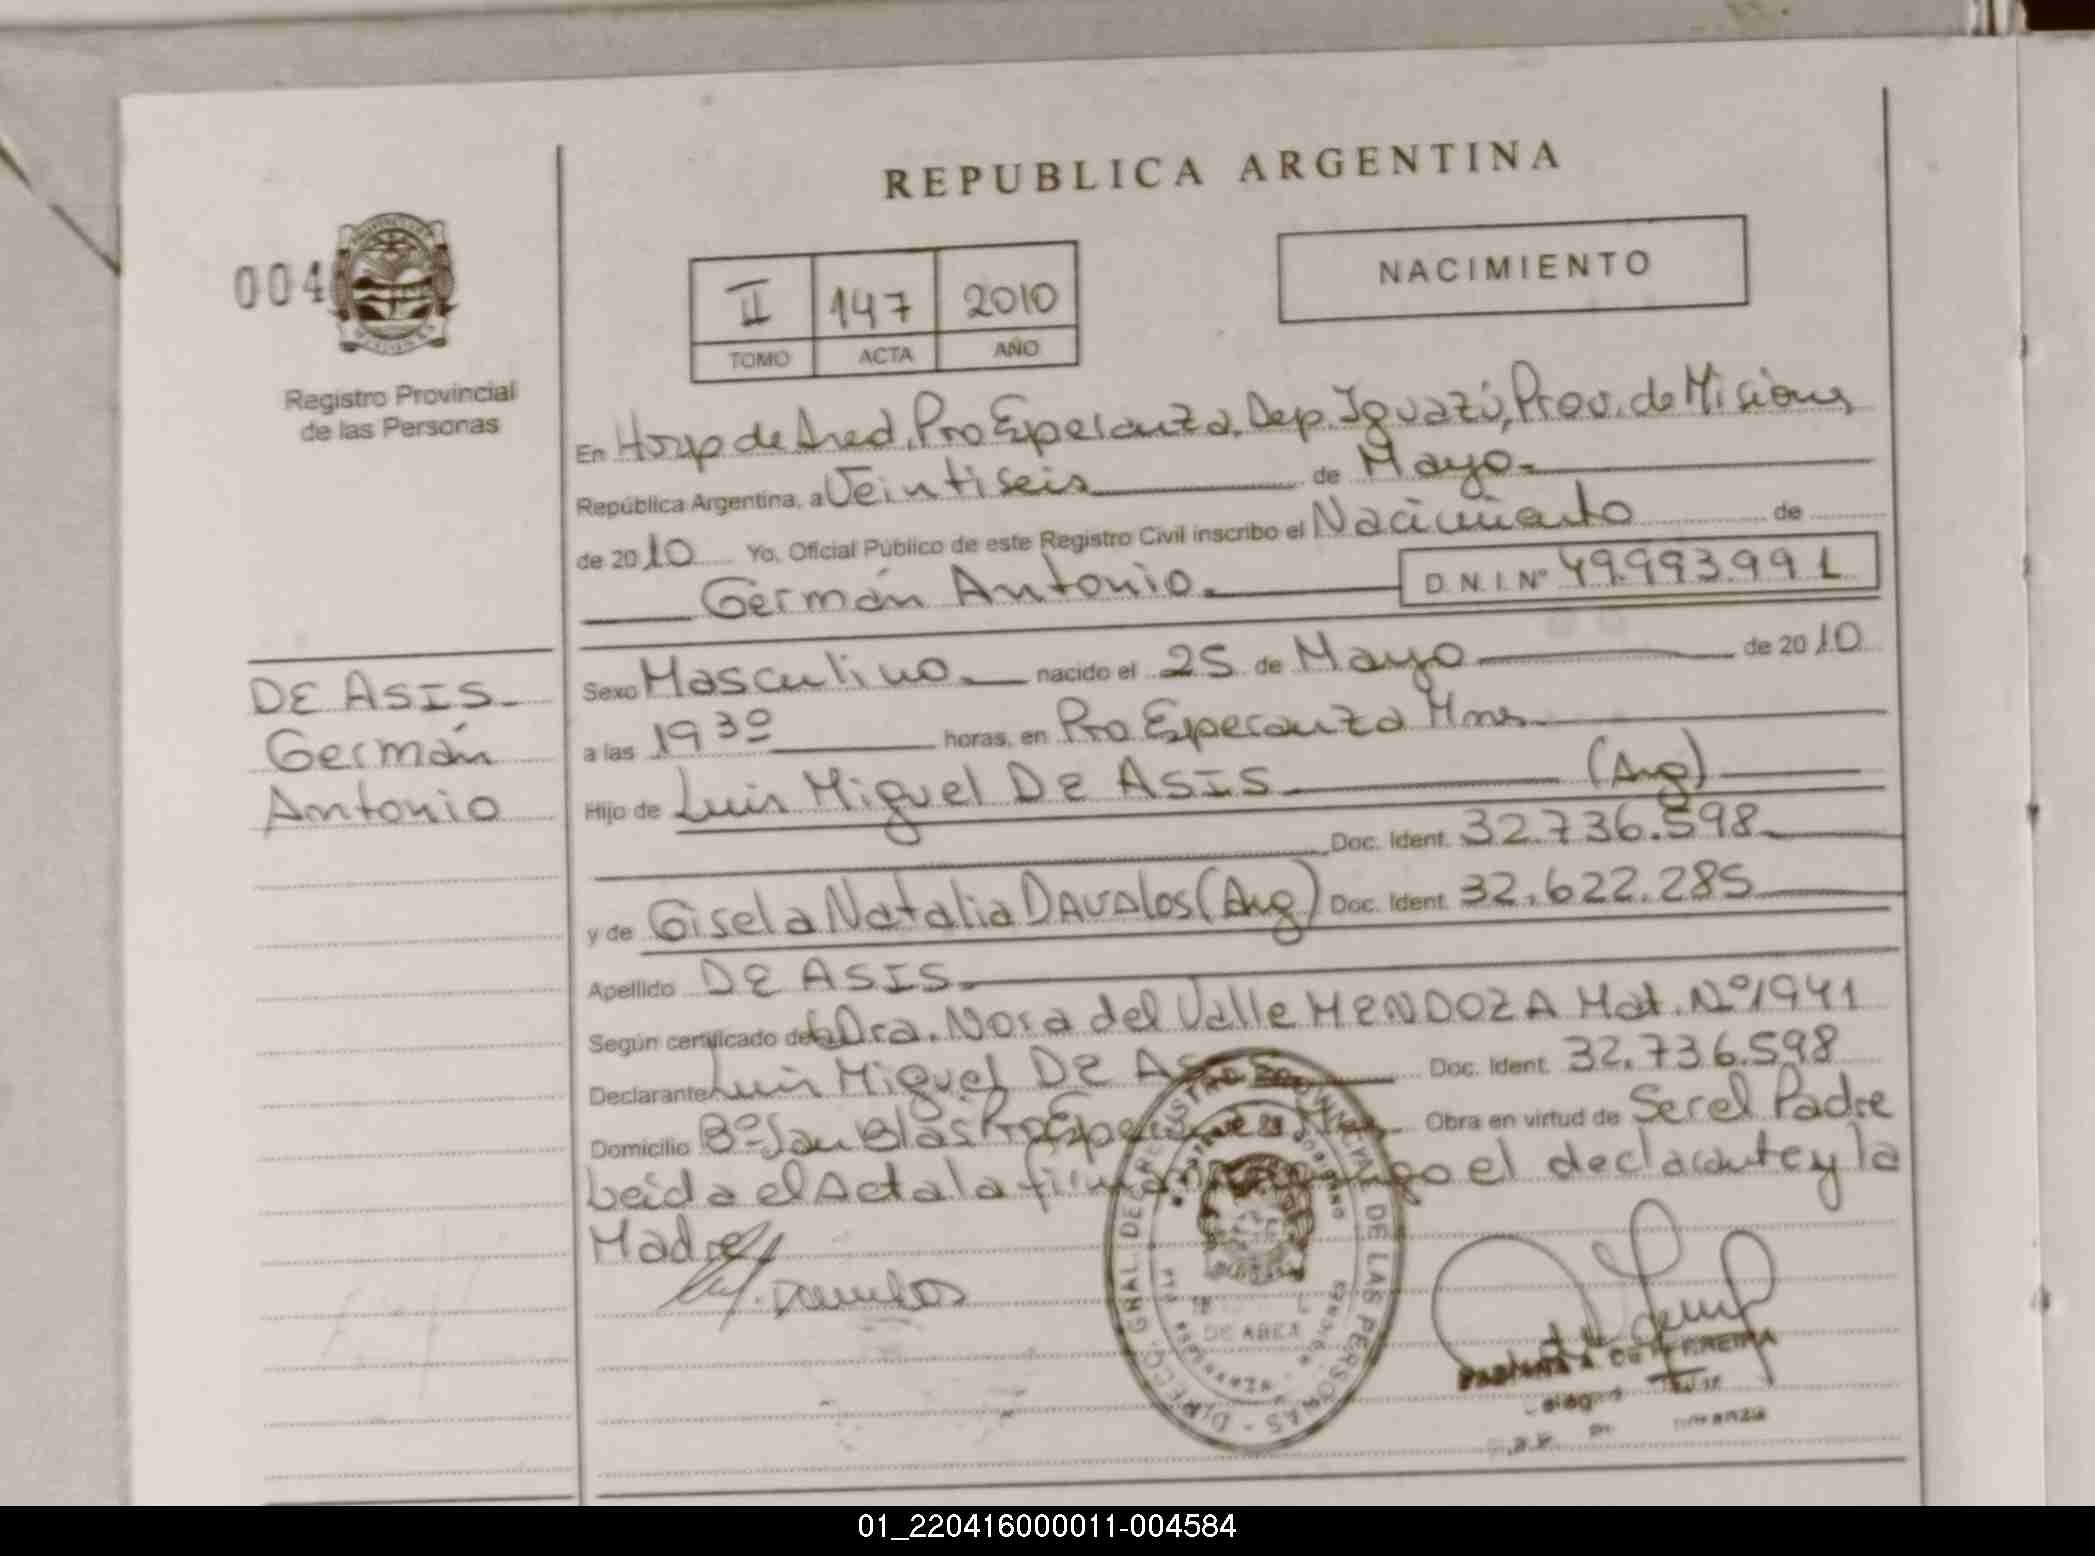 REPUBLICA ARGENTINA
004
Registro Provincial
de las Personas
II 147 2010
TOMO ACTA AÑO
NACIMIENTO
En Hosp de Area, Pto Esperanza, Dep. Iguazú, Prov. de Misiones
República Argentina, a Veintiseis de Mayo.
de 2010 Yo, Oficial Público de este Registro Civil inscribo el Nacimiento de
Germán Antonio. D.N.I. Nº 49.993.991
DE ASIS.
Germán
Antonio
Sexo Masculino. nacido el 25 de Mayo de 2010
a las 19 30 horas, en Pto Esperanza Mnes.
Hijo de Luis Miguel DE ASIS. (Arg)
Doc. Ident. 32.736.598
y de Gisela Natalia DAVALOS (Arg) Doc. Ident. 32.622.285
Apellido DE ASIS.
Según certificado de la Dra. Nora del Valle MENDOZA Mat. Nº 1941
Declarante Luis Miguel DE ASIS Doc. Ident. 32.736.598
Domicilio Bº San Blas Pto Esperanza Obra en virtud de Ser el Padre
Leida el Acta la firman conmigo el declarante y la
Madre
DIRECC. GRAL. DE REGISTRO PROVINCIAL DE LAS PERSONAS
DE AREA
FERREIRA
01_220416000011-004584